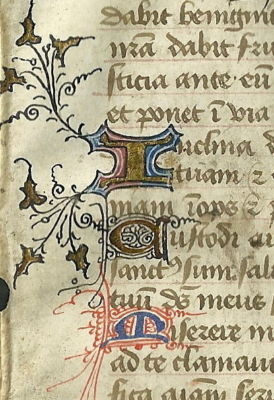 dabit benigni
nr̃a dabit fru
sticia ante eũ
et ponet ĩ via
Inclina d
tuam ⁊
niam ĩops ⁊
Custodi ai
sanctꝰ sum. sal
tuũ ds̃ meus
Miserere m
ad te clamaui
fica aĩam ser